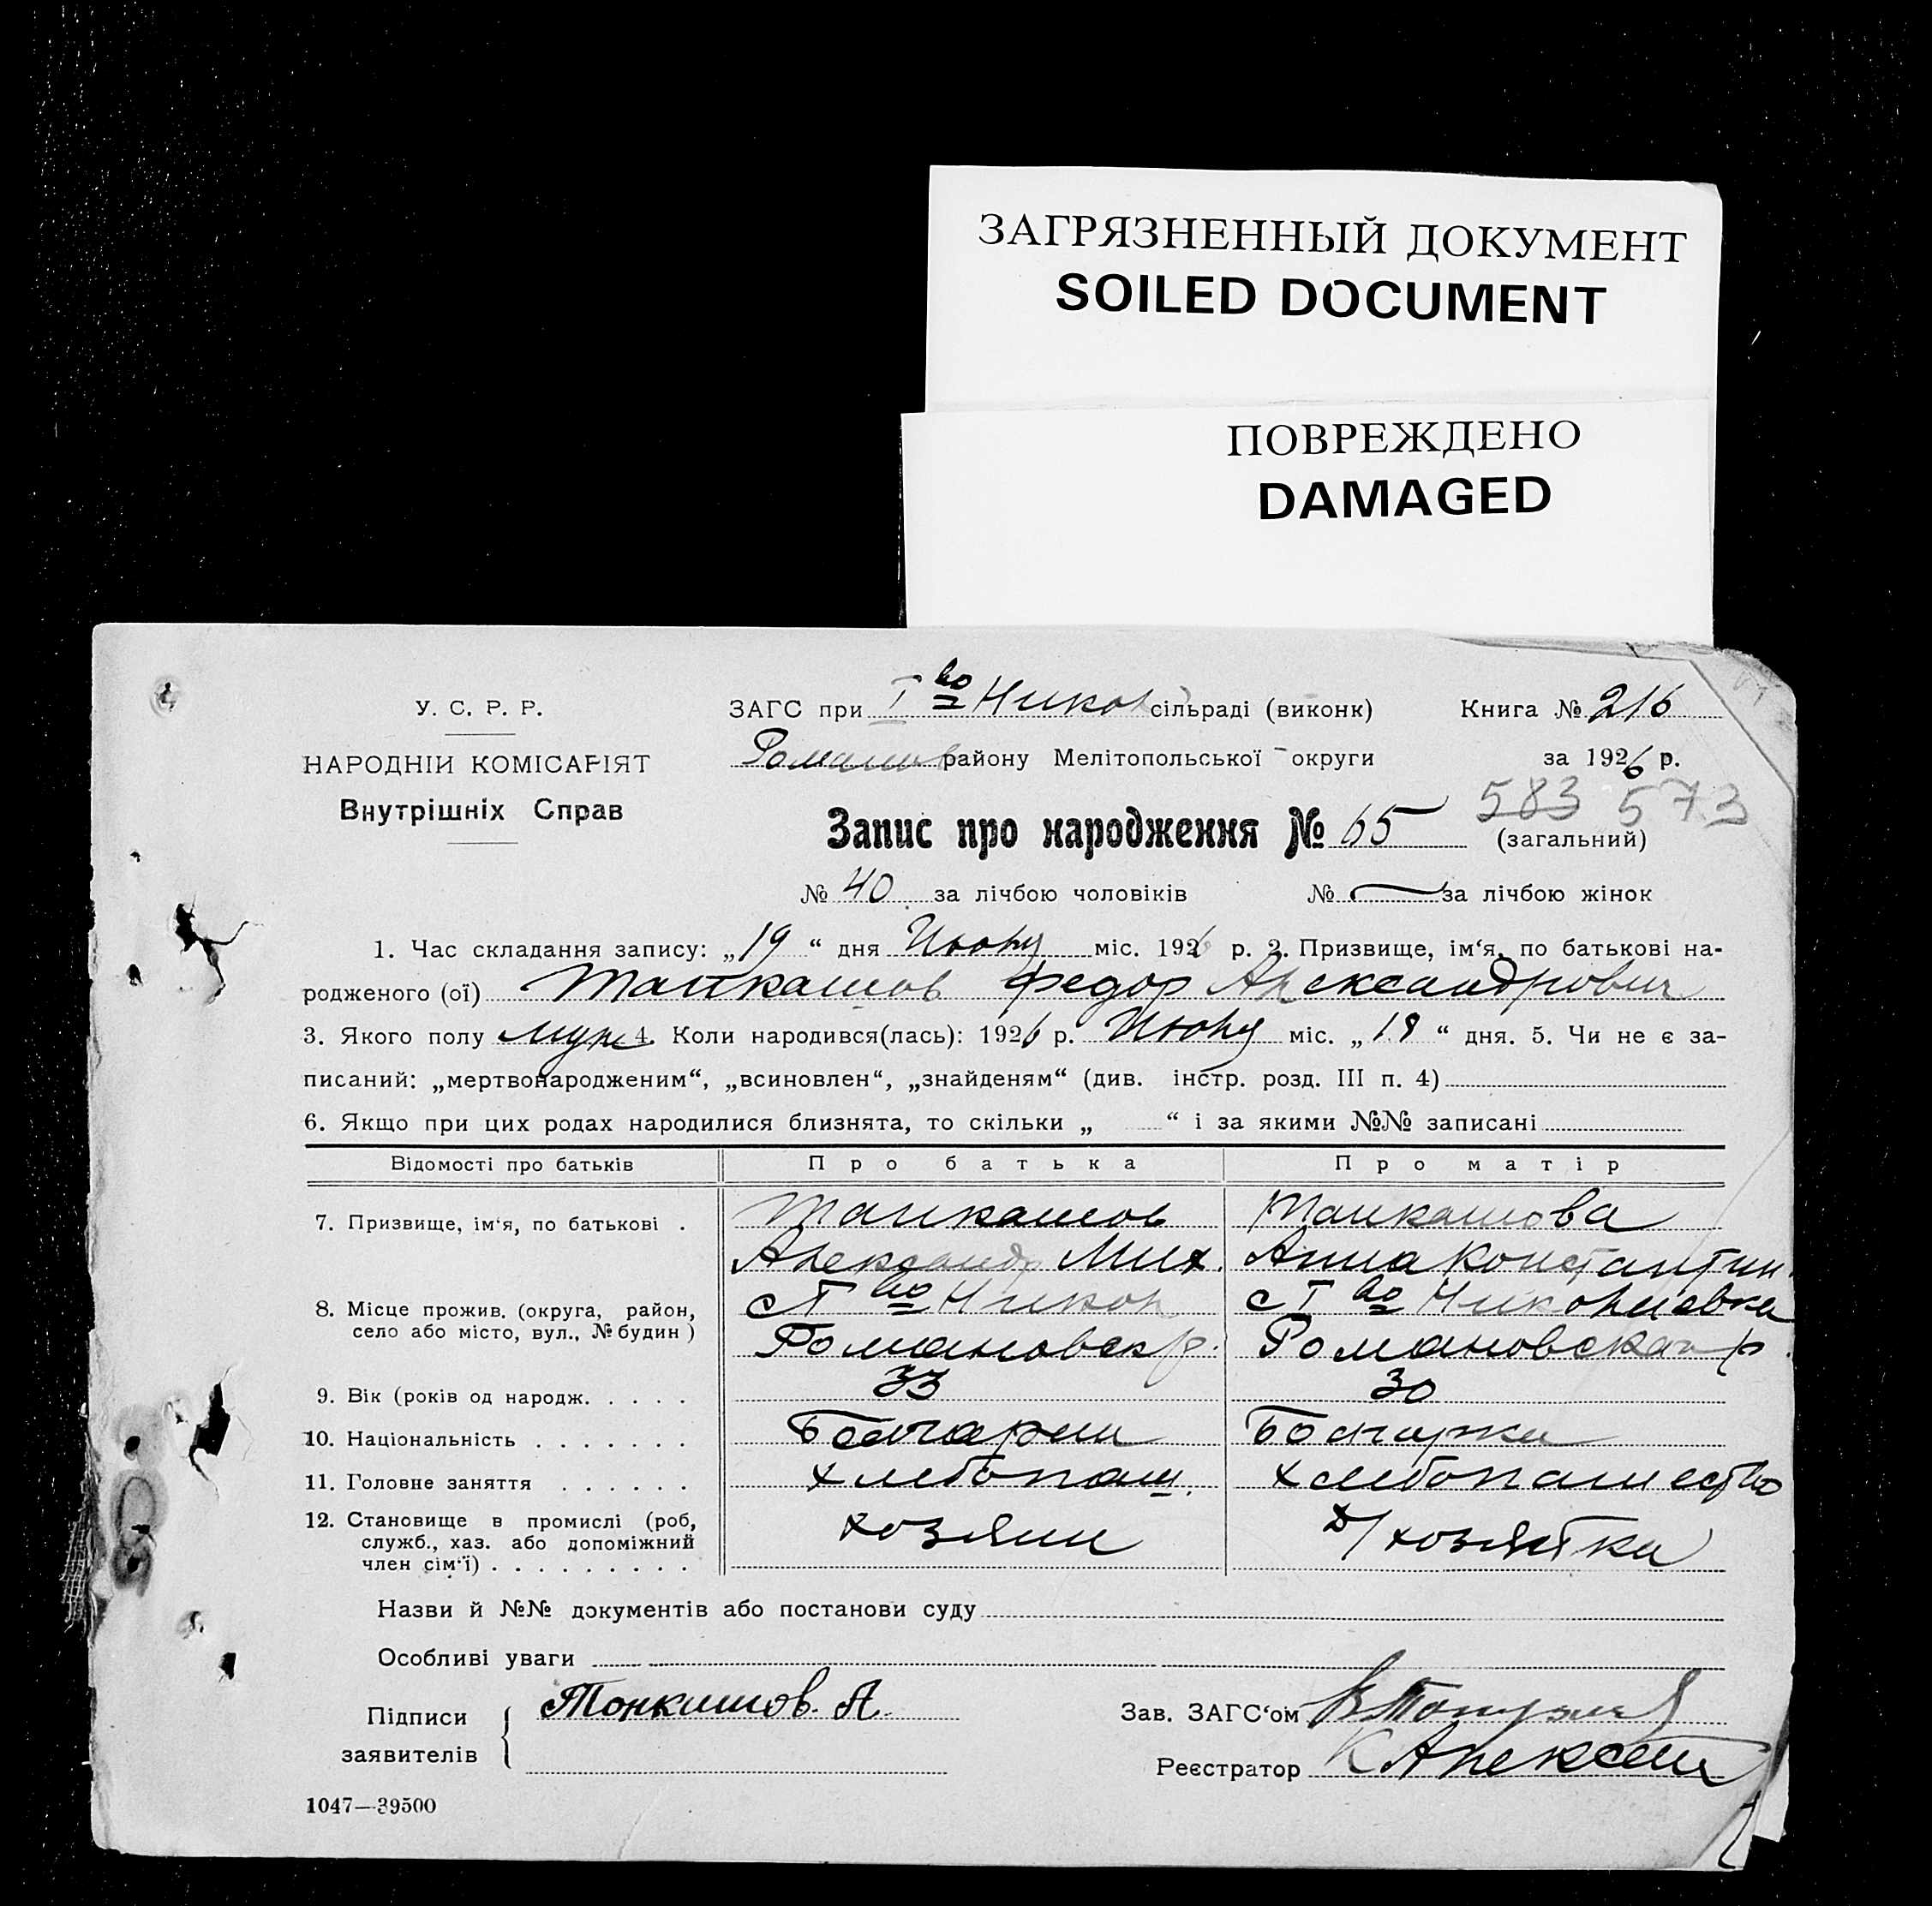 ЗАГРЯЗНЕННЫЙ ДОКУМЕНТ
SOILED DOCUMENT
ПОВРЕЖДЕНО
DAMAGED
У. С. Р. Р.
НАРОДНІЙ КОМІСАРІЯТ
Внутрішніх Справ
ЗАГС при І во Никол сільраді (виконк) Книга № 216
Романов району Мелітопольської округи за 1926 р.
583 573
Запис про народження № 65 (загальний)
№ 40 за лічбою чоловіків № — за лічбою жінок
1. Час складання запису: „19“ дня Июня міс. 1926 р. 2. Призвище, ім‘я, по батькові на-
родженого (ої) Тапкашов Федор Александрович
3. Якого полу муж 4. Коли народився(лась): 1926 р. Июня міс. „18“ дня. 5. Чи не є за-
писаний: „мертвонародженим“, „всиновлен“, „знайденям“ (див. інстр. розд. III п. 4)
6. Якщо при цих родах народилися близнята, то скільки „ “ і за якими №№ записані
Відомості про батьків Про батька Про матір
7. Призвище, ім‘я, по батькові . Тапкашов Тапкашова
Александр Мих. Анна Константин.
8. Місце прожив. (округа, район, с І во Никол с І во Николаевка
село або місто, вул., № будин) Романовск р. Романовская р.
9. Вік (років од народж. . . . . 33 30
10. Національність . . . . . . . Болгарин Болгарка
11. Головне заняття . . . . . . хлебопаш. хлебопашество
12. Становище в промислі (роб, служб., хаз. або допоміжний член сім‘ї) . . . . . . . . . хозяин д/хозяйка
Назви й №№ документів або постанови суду
Особливі уваги
Підписи заявителів Тонкишов. А. Зав. ЗАГС‘ом
Реєстратор К Алексеи
1047—39500